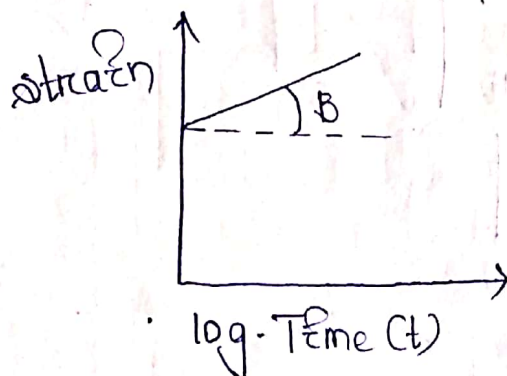 strain
B
log. Time (t)